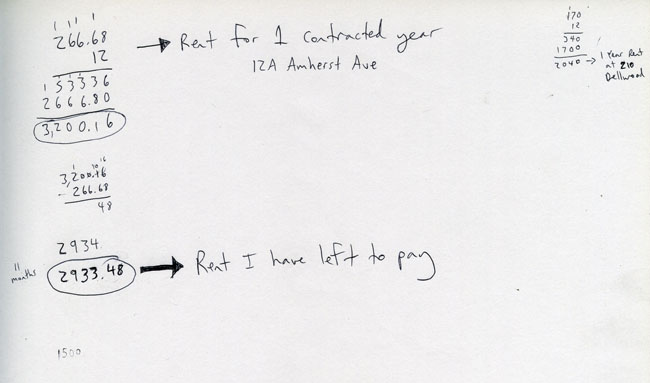 1 1 1
266.68
12
1 53336
2666.80
3,200.16
→ Rent for 1 contracted year
12A Amherst Ave
1
170
12
340
1700
2040 → 1 Year Rent
at 210
Dellwood
1 10 16
3,200.16
- 266.68
48
2934.
11
months
2933.48 → Rent I have left to pay
1500